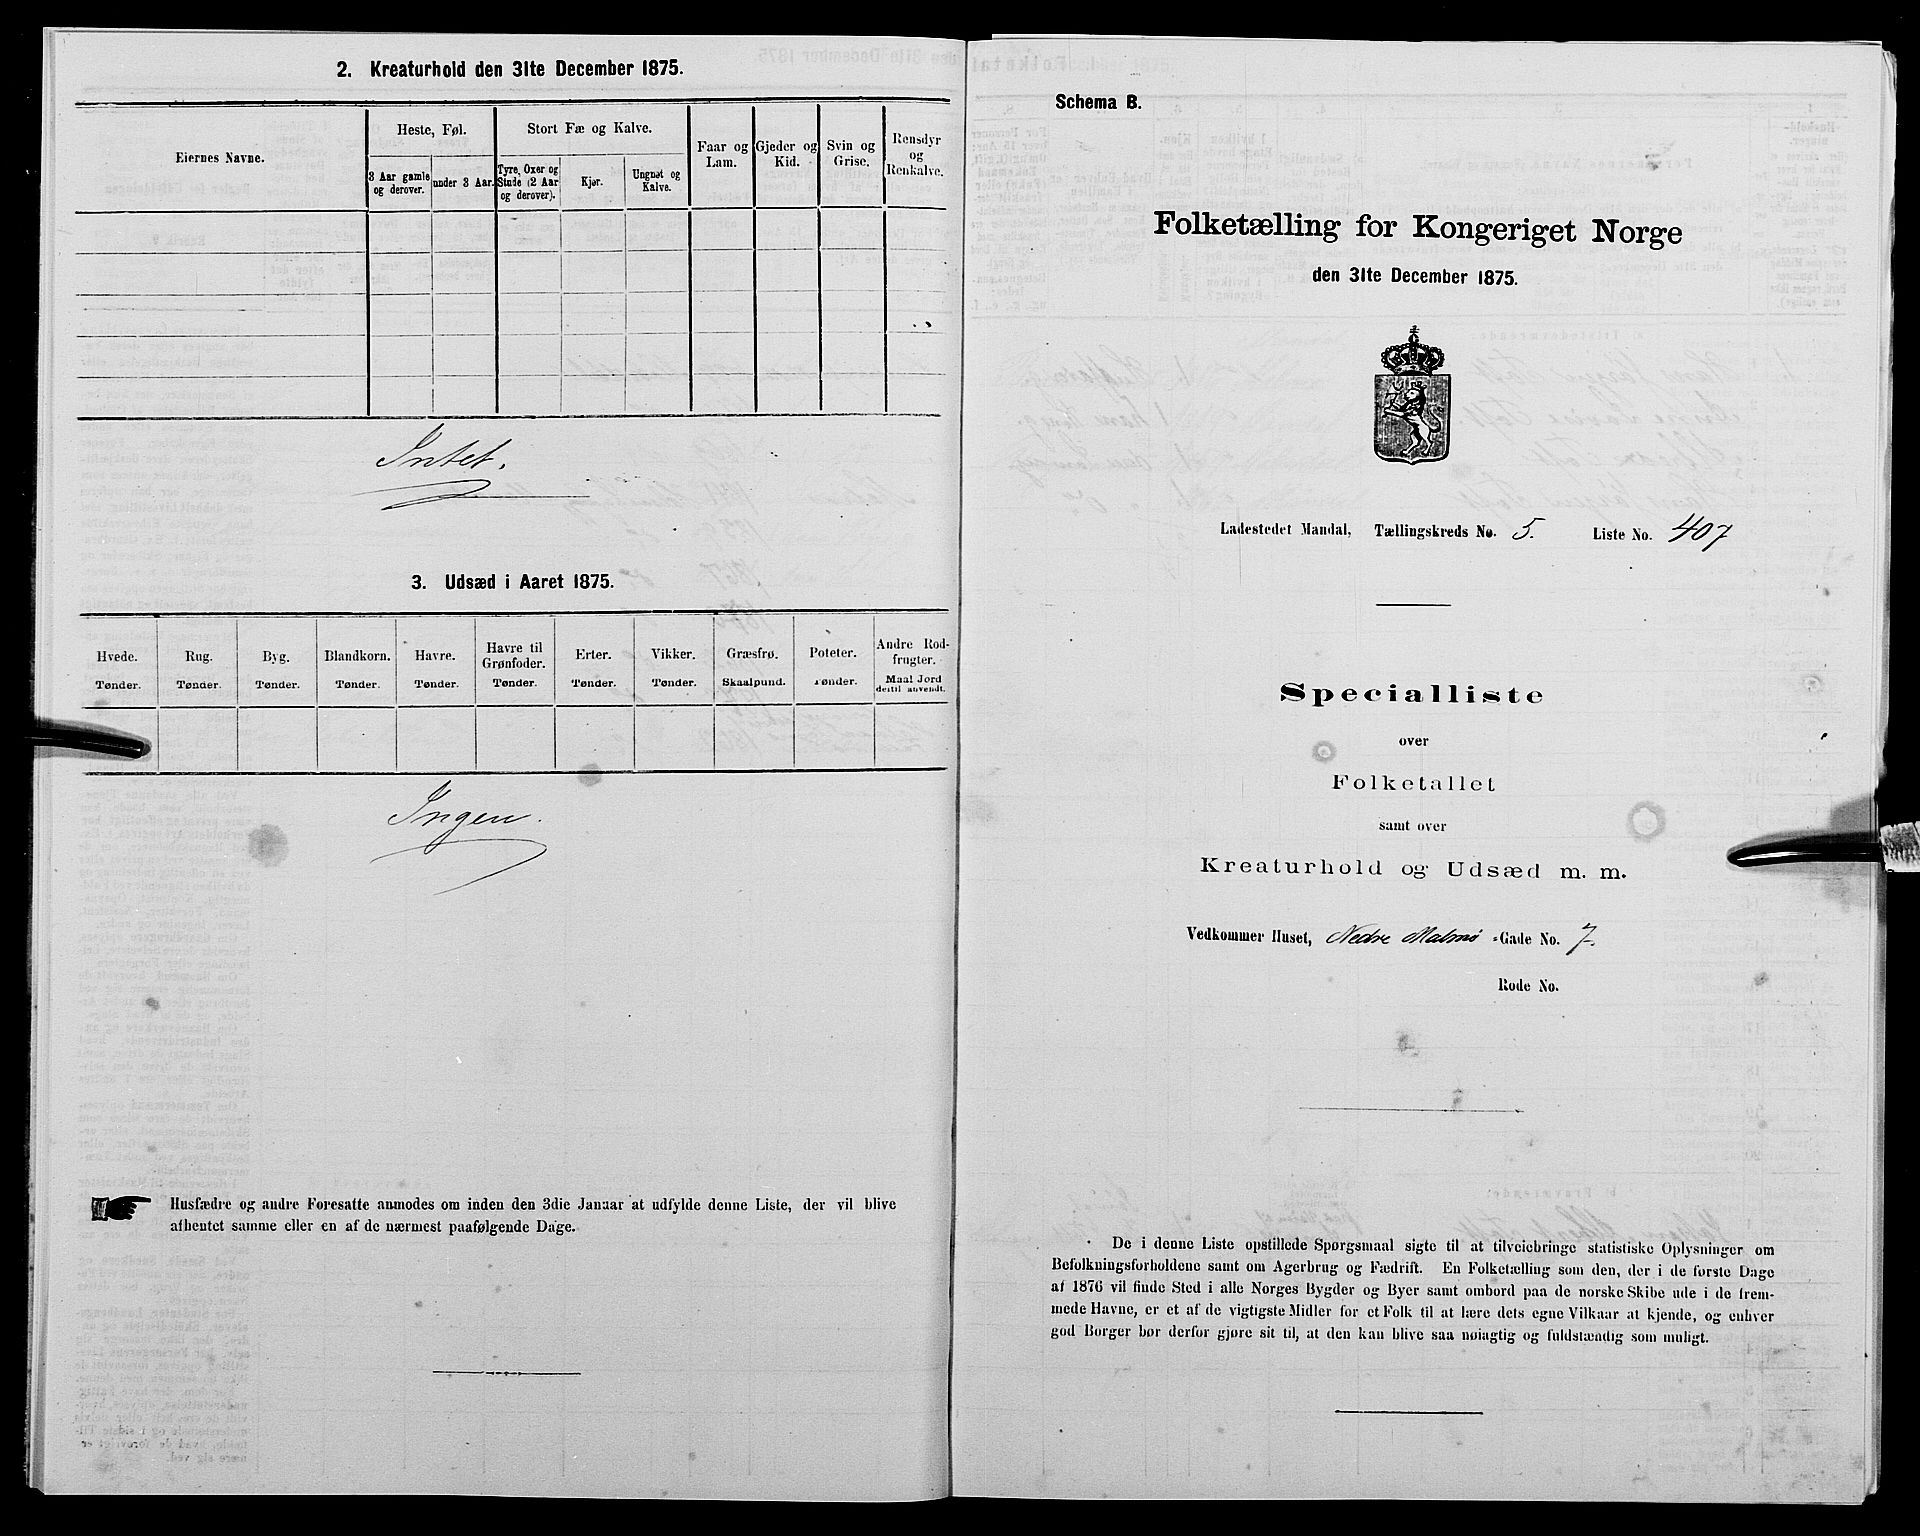 2. Kreaturhold den 31te December 1875.
Eiernes Navne.
Heste, Føl.
3 Aar gamle og derover.
under 3 Aar.
Stort Fæ og Kalve.
Tyre, Oxer og Stude (2 Aar og derover).
Kjør.
Ungnøt og Kalve.
Faar og Lam.
Gjeder og Kid.
Svin og Grise.
Rensdyr og Renkalve.
Intet.
3. Udsæd i Aaret 1875.
Hvede. Tønder.
Rug. Tønder.
Byg. Tønder.
Blandkorn. Tønder.
Havre. Tønder.
Havre til Grønfoder. Tønder.
Erter. Tønder.
Vikker. Tønder.
Græsfrø. Skaalpund.
Poteter. Tønder.
Andre Rodfrugter. Maal Jord dertil anvendt.
Ingen.
Husfædre og andre Foresatte anmodes om inden den 3die Januar at udfylde denne Liste, der vil blive
afhentet samme eller en af de nærmest paafølgende Dage.
Schema B.
Folketælling for Kongeriget Norge
den 31te December 1875.
Ladestedet Mandal, Tællingskreds No. 5. Liste No. 407
Specialliste
over
Folketallet
samt over
Kreaturhold og Udsæd m. m.
Vedkommer Huset, Nedre Malmø -Gade No. 7.
Rode No.
De i denne Liste opstillede Spørgsmaal sigte til at tilveiebringe statistiske Oplysninger om
Befolkningsforholdene samt om Agerbrug og Fædrift. En Folketælling som den, der i de første Dage
af 1876 vil finde Sted i alle Norges Bygder og Byer samt ombord paa de norske Skibe ude i de frem-
mede Havne, er et af de vigtigste Midler for et Folk til at lære dets egne Vilkaar at kjende, og enhver
god Borger bør derfor gjøre sit til, at den kan blive saa nøiagtig og fuldstændig som muligt.